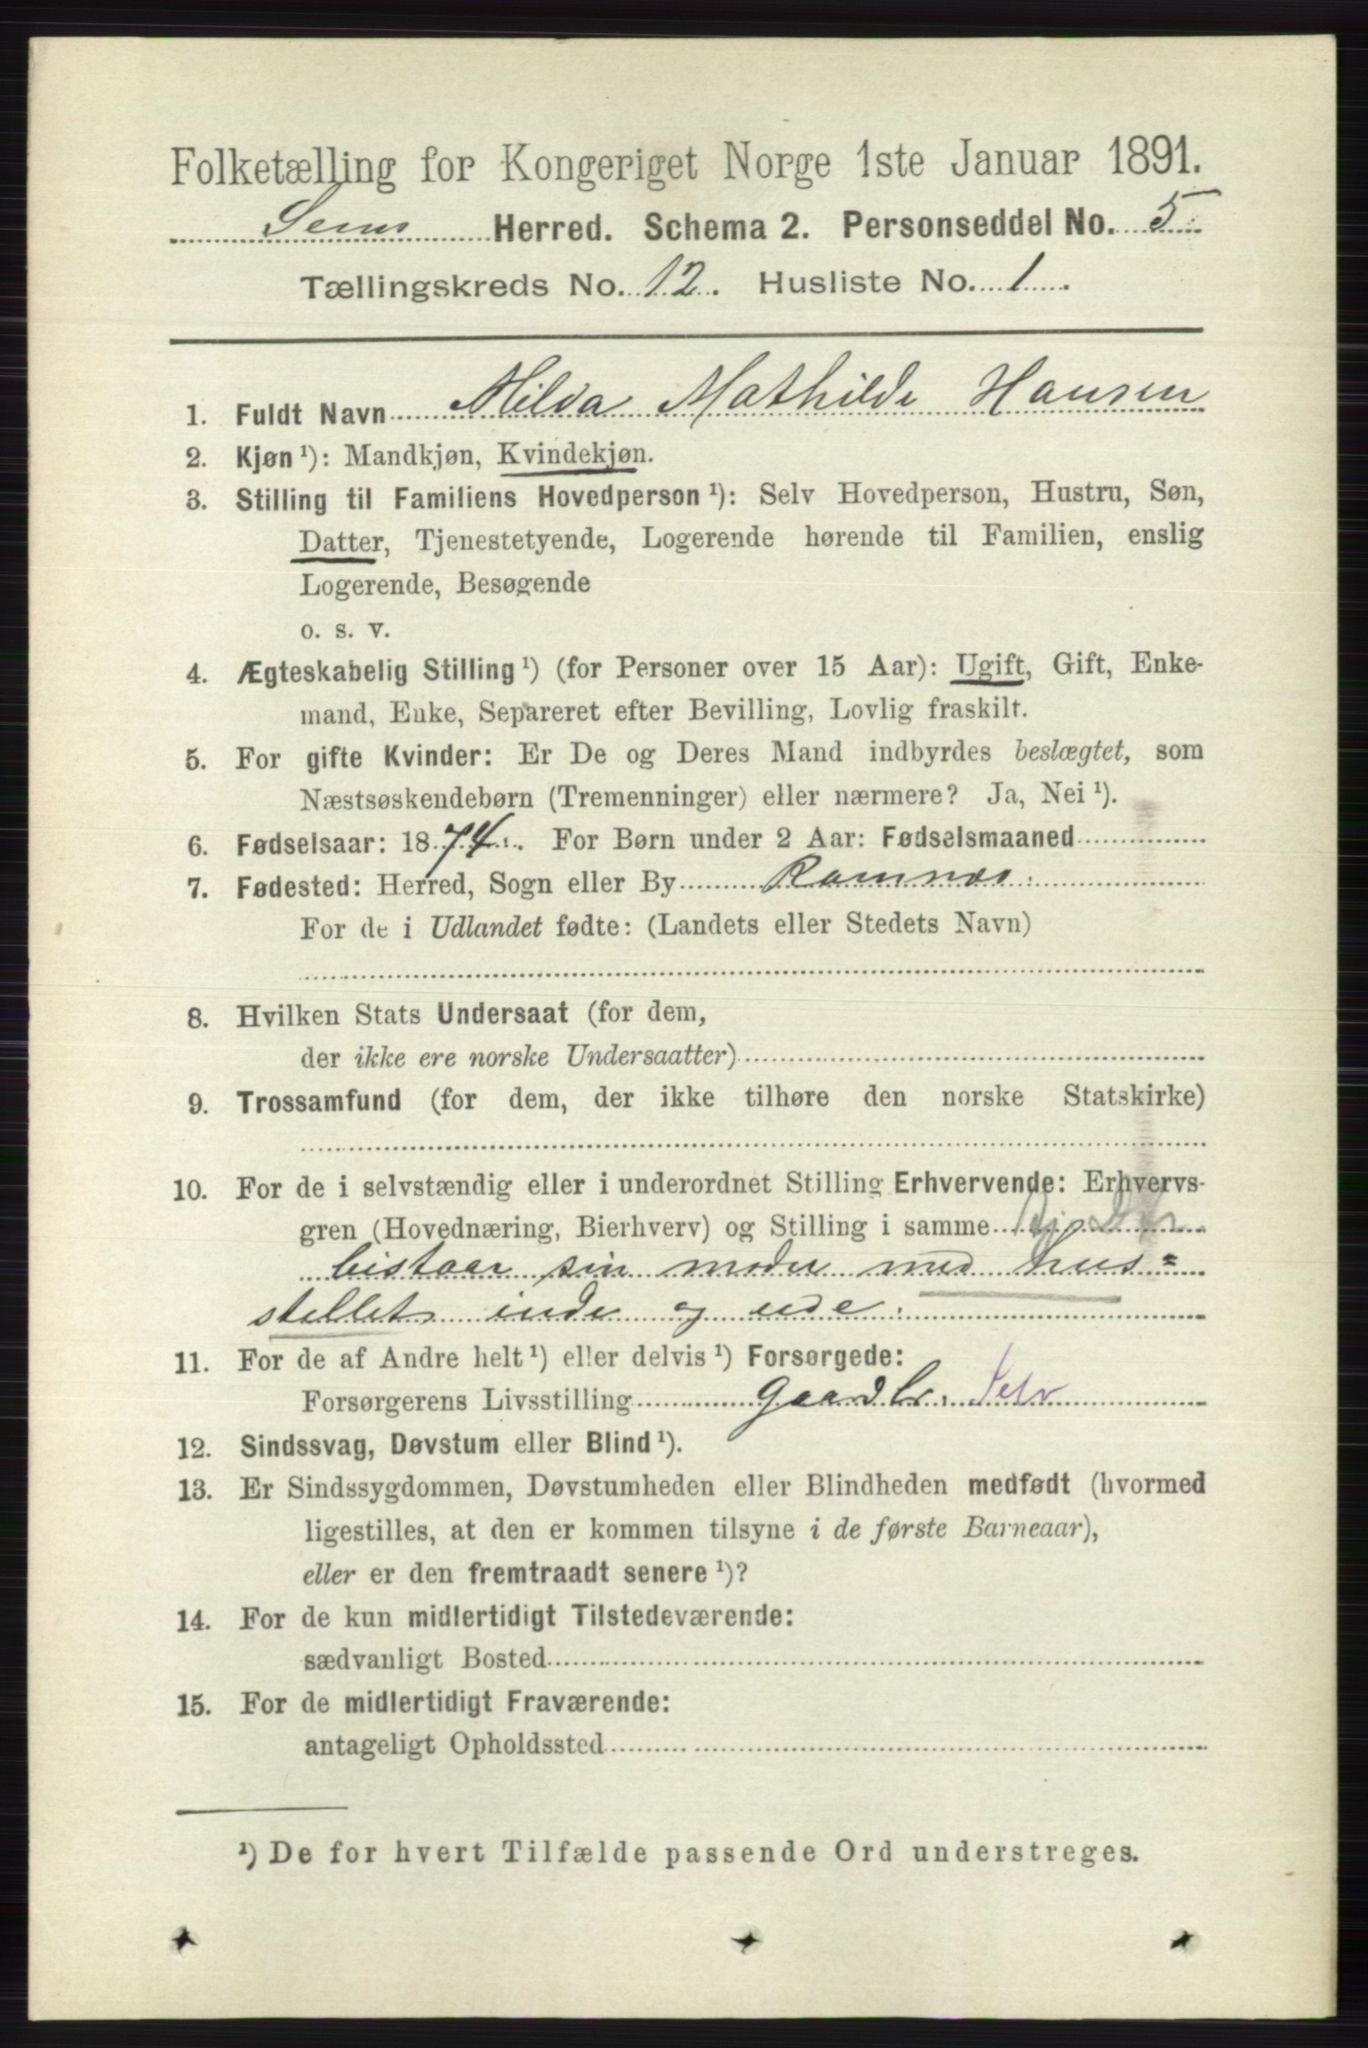 Folketælling for Kongeriget Norge 1ste Januar 1891.
Sems Herred. Schema 2. Personseddel No. 5.
Tællingskreds No. 12. Husliste No. 1.
1. Fuldt Navn Milda Mathilde Hansen
2. Kjøn ¹): Mandkjøn, Kvindekjøn.
3. Stilling til Familiens Hovedperson ¹): Selv Hovedperson, Hustru, Søn,
Datter, Tjenestetyende, Logerende hørende til Familien, enslig
Logerende, Besøgende
o. s. v.
4. Ægteskabelig Stilling ¹) (for Personer over 15 Aar): Ugift, Gift, Enke-
mand, Enke, Separeret efter Bevilling, Lovlig fraskilt.
5. For gifte Kvinder: Er De og Deres Mand indbyrdes beslægtet, som
Næstsøskendebørn (Tremenninger) eller nærmere? Ja, Nei ¹).
6. Fødselsaar: 1874. For Børn under 2 Aar: Fødselsmaaned
7. Fødested: Herred, Sogn eller By Ramnæs.
For de i Udlandet fødte: (Landets eller Stedets Navn)
8. Hvilken Stats Undersaat (for dem,
der ikke ere norske Undersaatter)
9. Trossamfund (for dem, der ikke tilhøre den norske Statskirke)
10. For de i selvstændig eller i underordnet Stilling Erhvervende: Erhvervs-
gren (Hovednæring, Bierhverv) og Stilling i samme
bistaar sin moder med hus=
stellet inde og ude.
11. For de af Andre helt ¹) eller delvis ¹) Forsørgede:
Forsørgerens Livsstilling Gaardbr. Selv
12. Sindssvag, Døvstum eller Blind ¹).
13. Er Sindssygdommen, Døvstumheden eller Blindheden medfødt (hvormed
ligestilles, at den er kommen tilsyne i de første Barneaar),
eller er den fremtraadt senere ¹)?
14. For de kun midlertidigt Tilstedeværende:
sædvanligt Bosted
15. For de midlertidigt Fraværende:
antageligt Opholdssted
¹) De for hvert Tilfælde passende Ord understreges.